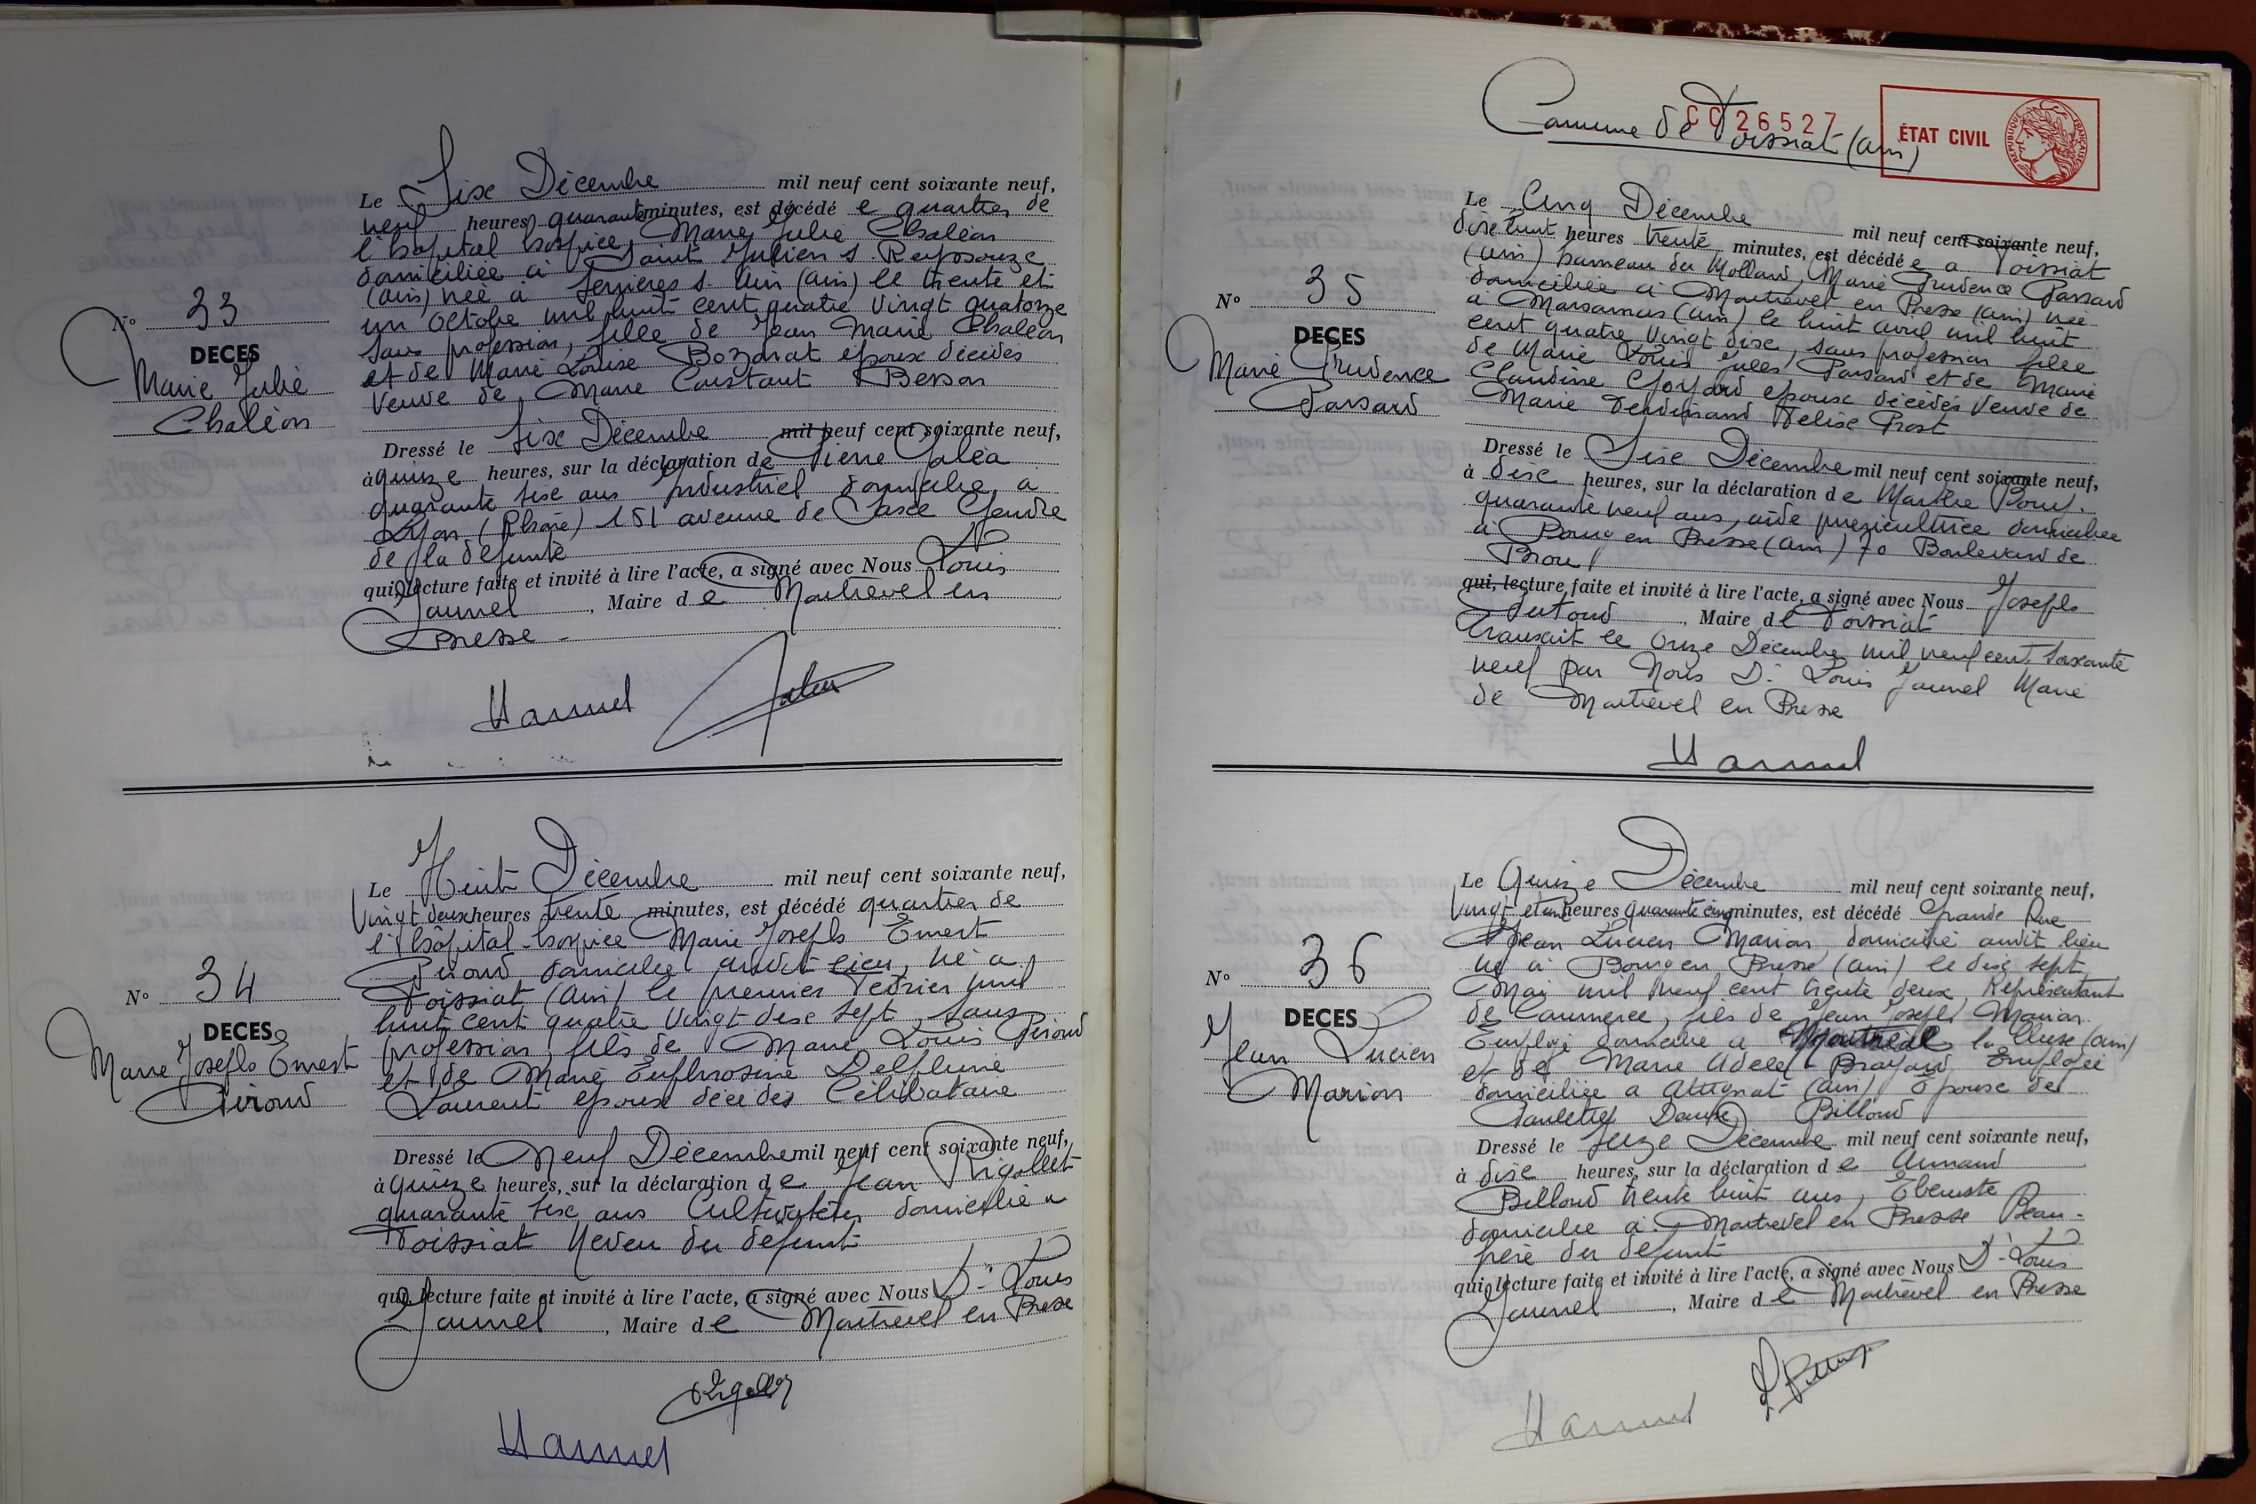 N° 33
DECES
Marie Julie
Chaléon
Le Sixe Décembre mil neuf cent soixante neuf,
neuf heures quarante minutes, est décédé e quartier de
l'hopital hospice, Marie Julie Chaléon
domiciliée à Saint Julien s. Reyssouze
(ain) née à Servieres s. Ain (ain) le trente et
un Octobre mil huit cent quatre Vingt quatorze
Sans profession, fille de Jean Marie Chaléon
et de Marie Louise Bozonat époux décédés
Veuve de Marie Constant Besson
Dressé le Sixe Décembre mil neuf cent soixante neuf,
à quinze heures, sur la déclaration de Pierre Jaléa
quarante sixe ans Industriel domicilié a
Lyon (Rhone) 151 avenue de Gendre
de la défunte
qui, lecture faite et invité à lire l'acte, a signé avec Nous Louis
Jaunel, Maire de Montrevel en
Bresse -
N° 34
DECES
Marie Josefh Ernest
Piroud
Le Huit Décembre mil neuf cent soixante neuf,
Vingt deux heures trente minutes, est décédé quartier de
l'hôpital-hospice Marie Josefh Ernest
Piroud domicilié audit lieu, né a
Foissiat (ain) le premier Fevrier mil
huit cent quatre Vingt dixe sept, Sans
profession, fils de Marie Louis Piroud
et de Marie Euphrosine Delphine
Laurent époux décédés Célibataire
Dressé le Neuf Décembre mil neuf cent soixante neuf,
à quinze heures, sur la déclaration de Jean Rigollet
quarante sixe ans Cultivateur domicilié a
Foissiat Neveu du défunt
qui, lecture faite et invité à lire l'acte, a signé avec Nous Dr Louis
Jaunel, Maire de Montrevel en Bresse
Commune de Foissiat (ain)
CC 26527
ÉTAT CIVIL
RÉPUBLIQUE FRANÇAISE
N° 35
DECES
Marie Prudence
Passard
Le Cinq Décembre mil neuf cent soixante neuf,
dixe huit heures trente minutes, est décédé e a Foissiat
(ain) hameau du Mollard, Marie Prudence Passard
domiciliée à Montrevel en Bresse (ain) née
à Marsonnas (ain) le huit avril mil huit
cent quatre Vingt dixe, Sans profession fille
de Marie Louis Jules Passard et de Marie
Claudine Goyard époux décédés Veuve de
Marie Ferdinand Felixe Prost
Dressé le Sixe Décembre mil neuf cent soixante neuf,
à dixe heures, sur la déclaration de Marthe
quarante neuf ans, aide puericultrice domiciliée
à Bourg en Bresse (ain) 70 Boulevard de
Brou
qui, lecture faite et invité à lire l'acte, a signé avec Nous Josefh
Maire de Foissiat
Transcrit le Onze Décembre mil neuf cent Soixante
neuf par Nous Dr Louis Jaunel Maire
de Montrevel en Bresse
N° 36
DECES
Jean Lucien
Marion
Le Quinze Décembre mil neuf cent soixante neuf,
Vingt et un heures Quarante cinq minutes, est décédé Grande Rue
Jean Lucien Marion domicilié audit lieu
né à Bourg en Bresse (ain) le dixe sept
Mai mil Neuf cent trente deux, Représentant
de Commerce, fils de Jean Josefh Marion
Employé domicilié a Montréal la Cluse (ain)
et de Marie Adèle Brayard Employée
domiciliée a Attignat (ain) Epouse de
Paulette Danse Billoud
Dressé le Seize Décembre mil neuf cent soixante neuf,
à dixe heures, sur la déclaration de Armand
Billoud trente huit ans, Ebeniste
domicilié à Montrevel en Bresse Beau-
père du défunt
qui, lecture faite et invité à lire l'acte, a signé avec Nous Dr Louis
Jaunel, Maire de Montrevel en Bresse